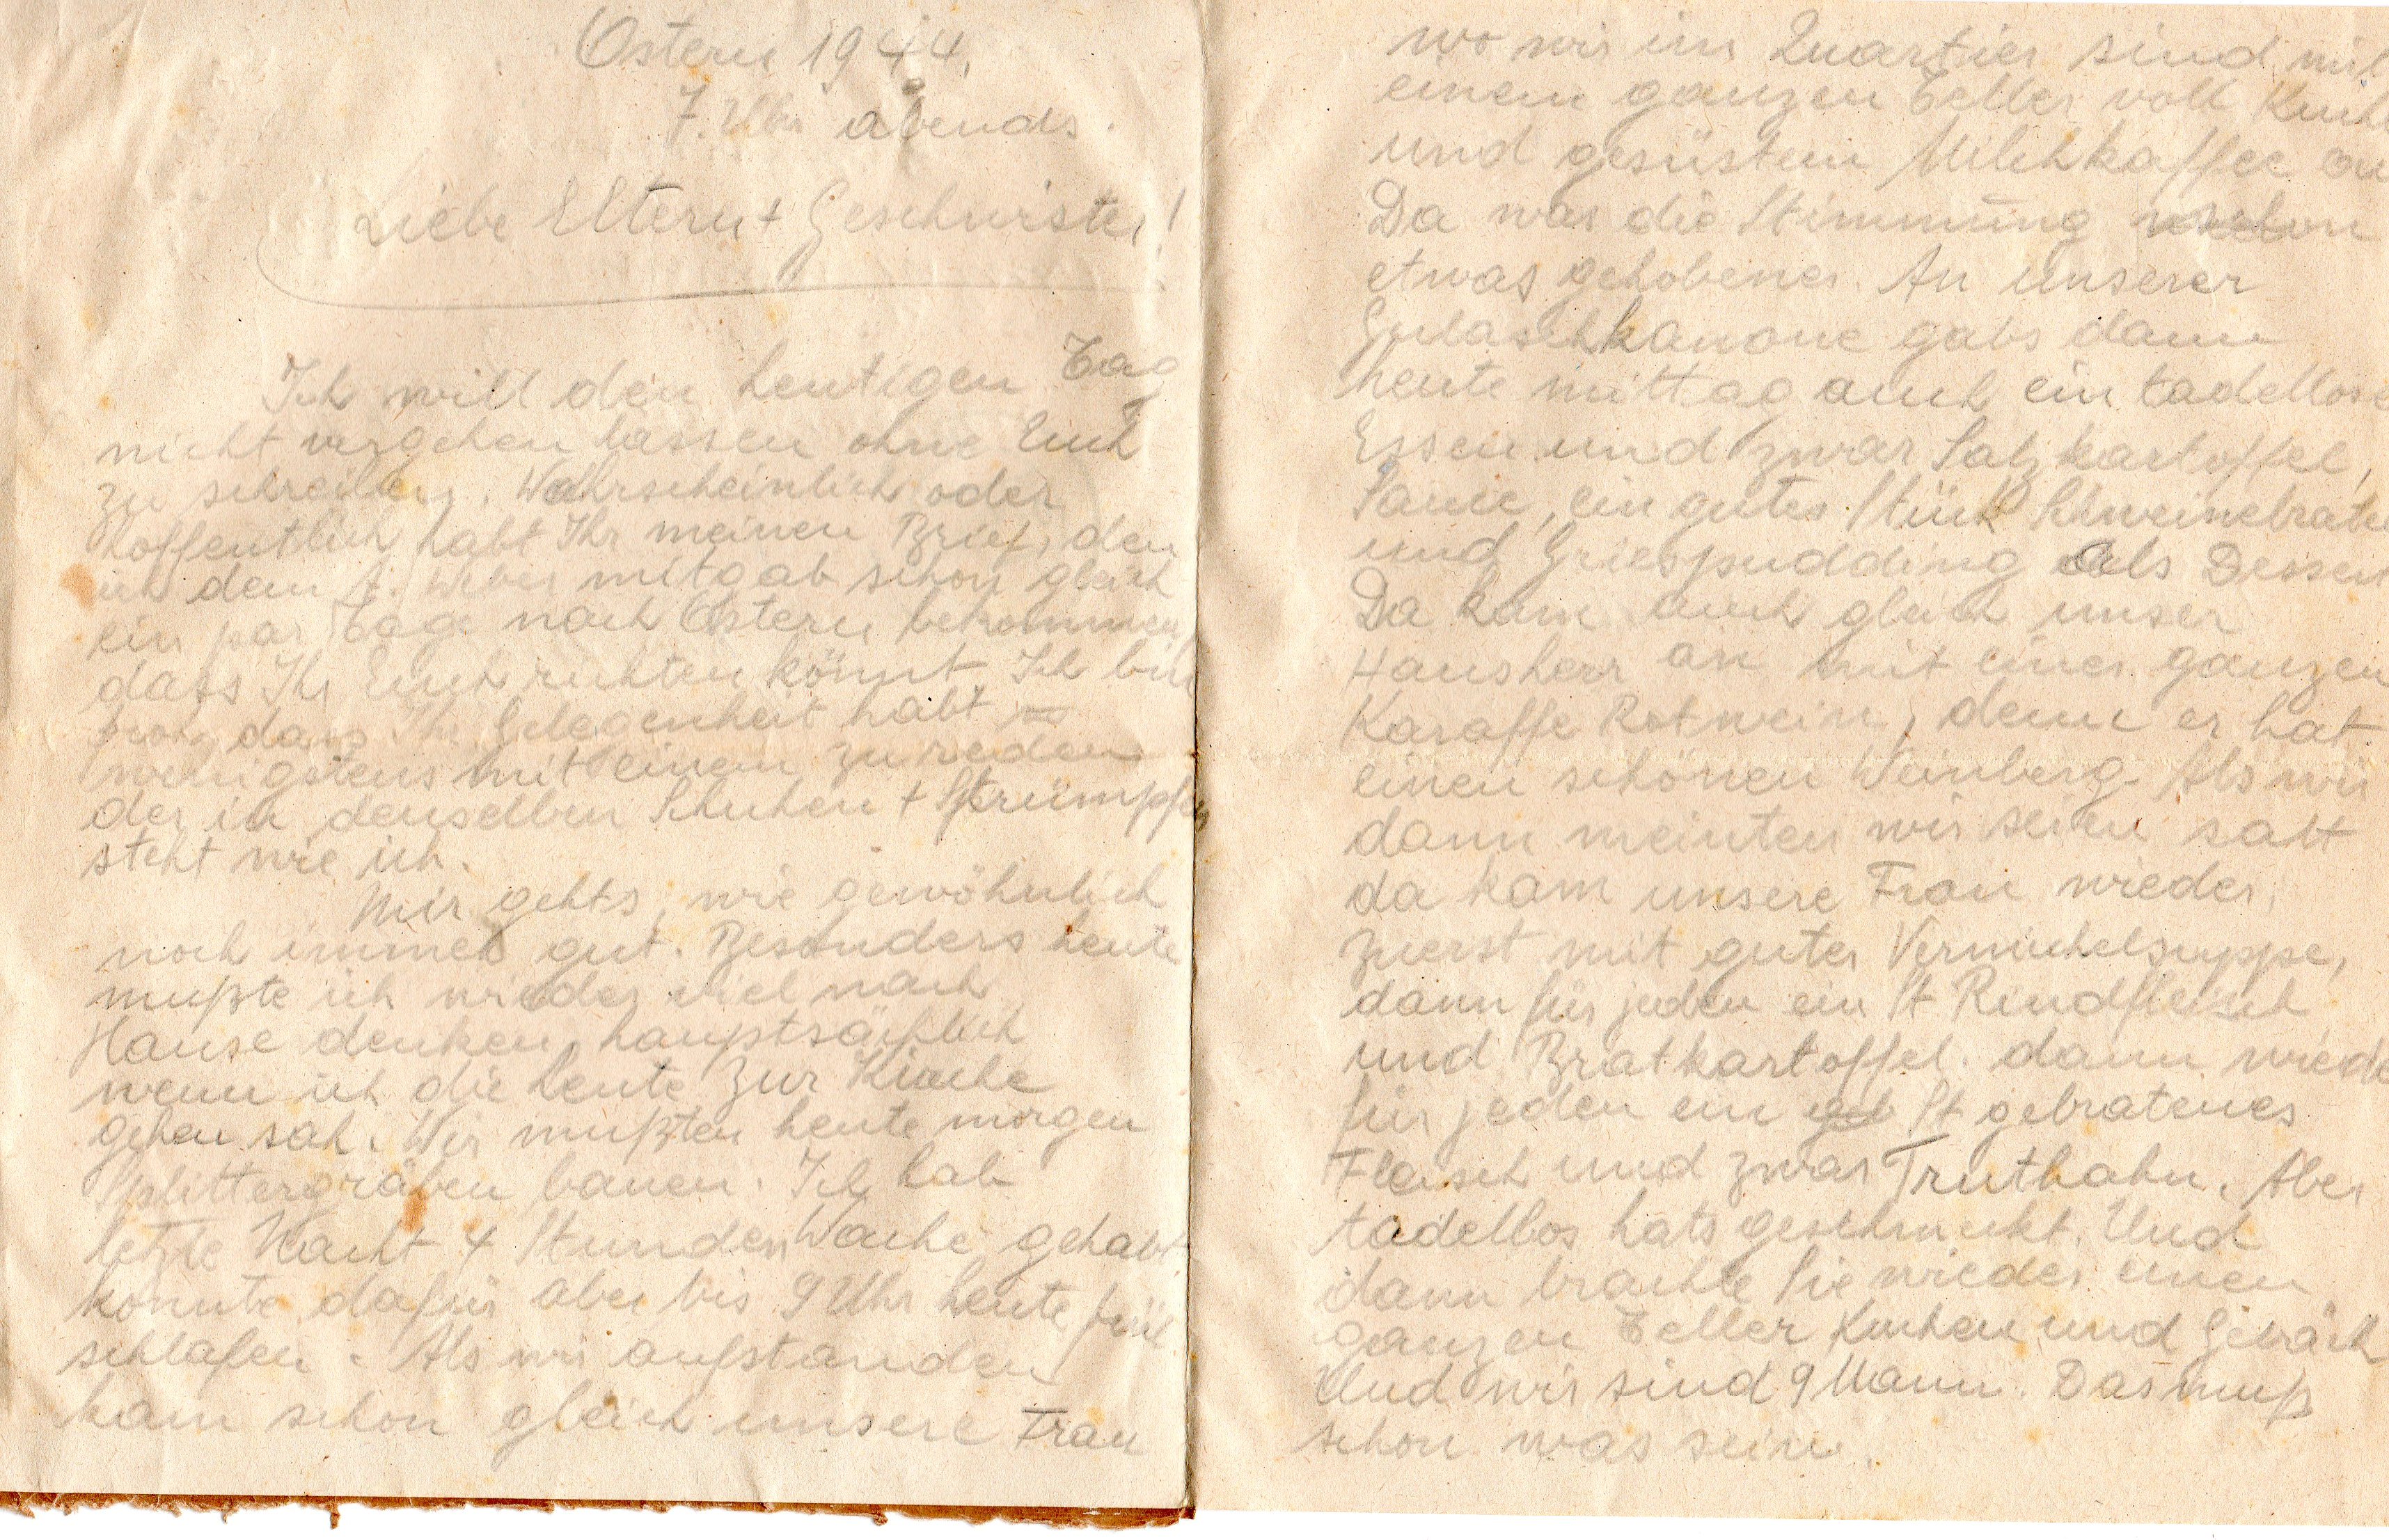 Ostern 1944.
7. Uhr abends.
Liebe Eltern + Geschwister!
Ich will den heutigen Tag
nicht vergehen lassen ohne Euch
zu schreiben. Wahrscheinlich oder
hoffentlich habt Ihr meinen Brief, den
ich dem A. Weber mitgab schon gleich
ein par Tage nach Ostern bekommen,
dass Ihr Euch richten könnt. Ich bin
froh, dass Ihr Gelegenheit habt
wenigstens mit einem zu reden
der in denselben Schuhen + Strümpfen
steht wie ich.
Mir gehts, wie gewöhnlich
noch immer gut. Besonders heute
mußte ich wieder viel nach
Hause denken, hauptsächlich
wenn ich die Leute zur Kirche
gehen sah. Wir mußten heute morgen
Splittergräben bauen. Ich hab
letzte Nacht 4 Stunden Wache gehabt
konnte dafür aber bis 9 Uhr heute früh
schlafen. Als wir aufstanden
kam schon gleich unsere Frau
wo wir im Quartier sind mit
einem ganzen Teller voll Kuche
und gesüstem Milchkaffee an
Da war die Stimmung schon
etwas gehobener. An unserer
Gulaschkanone gabs dann
heute mittag auch ein tadellose
Essen und zwar Salzkartoffel,
Sauce, ein gutes Stück Schweinebrate
und Griespudding als Dessert
Da kam auch gleich unser
Hausherr an mit einer ganzen
Karaffe Rotwein, denn er hat
einen schönen Weinberg. Als wir
dann meinten wir seien satt
da kam unsere Frau wieder,
zuerst mit guter Vermichelsuppe,
dann für jeden ein St Rindfleisch
und Bratkartoffel. dann wiede
für jeden ein St gebratenes
Fleisch und zwar Truthahn. Aber
tadellos hats geschmeckt. Und
dann brachte Sie wieder einen
ganzen Teller Kuchen und Gebäck
Und wir sind 9 Mann. Das muß
schon was sein.